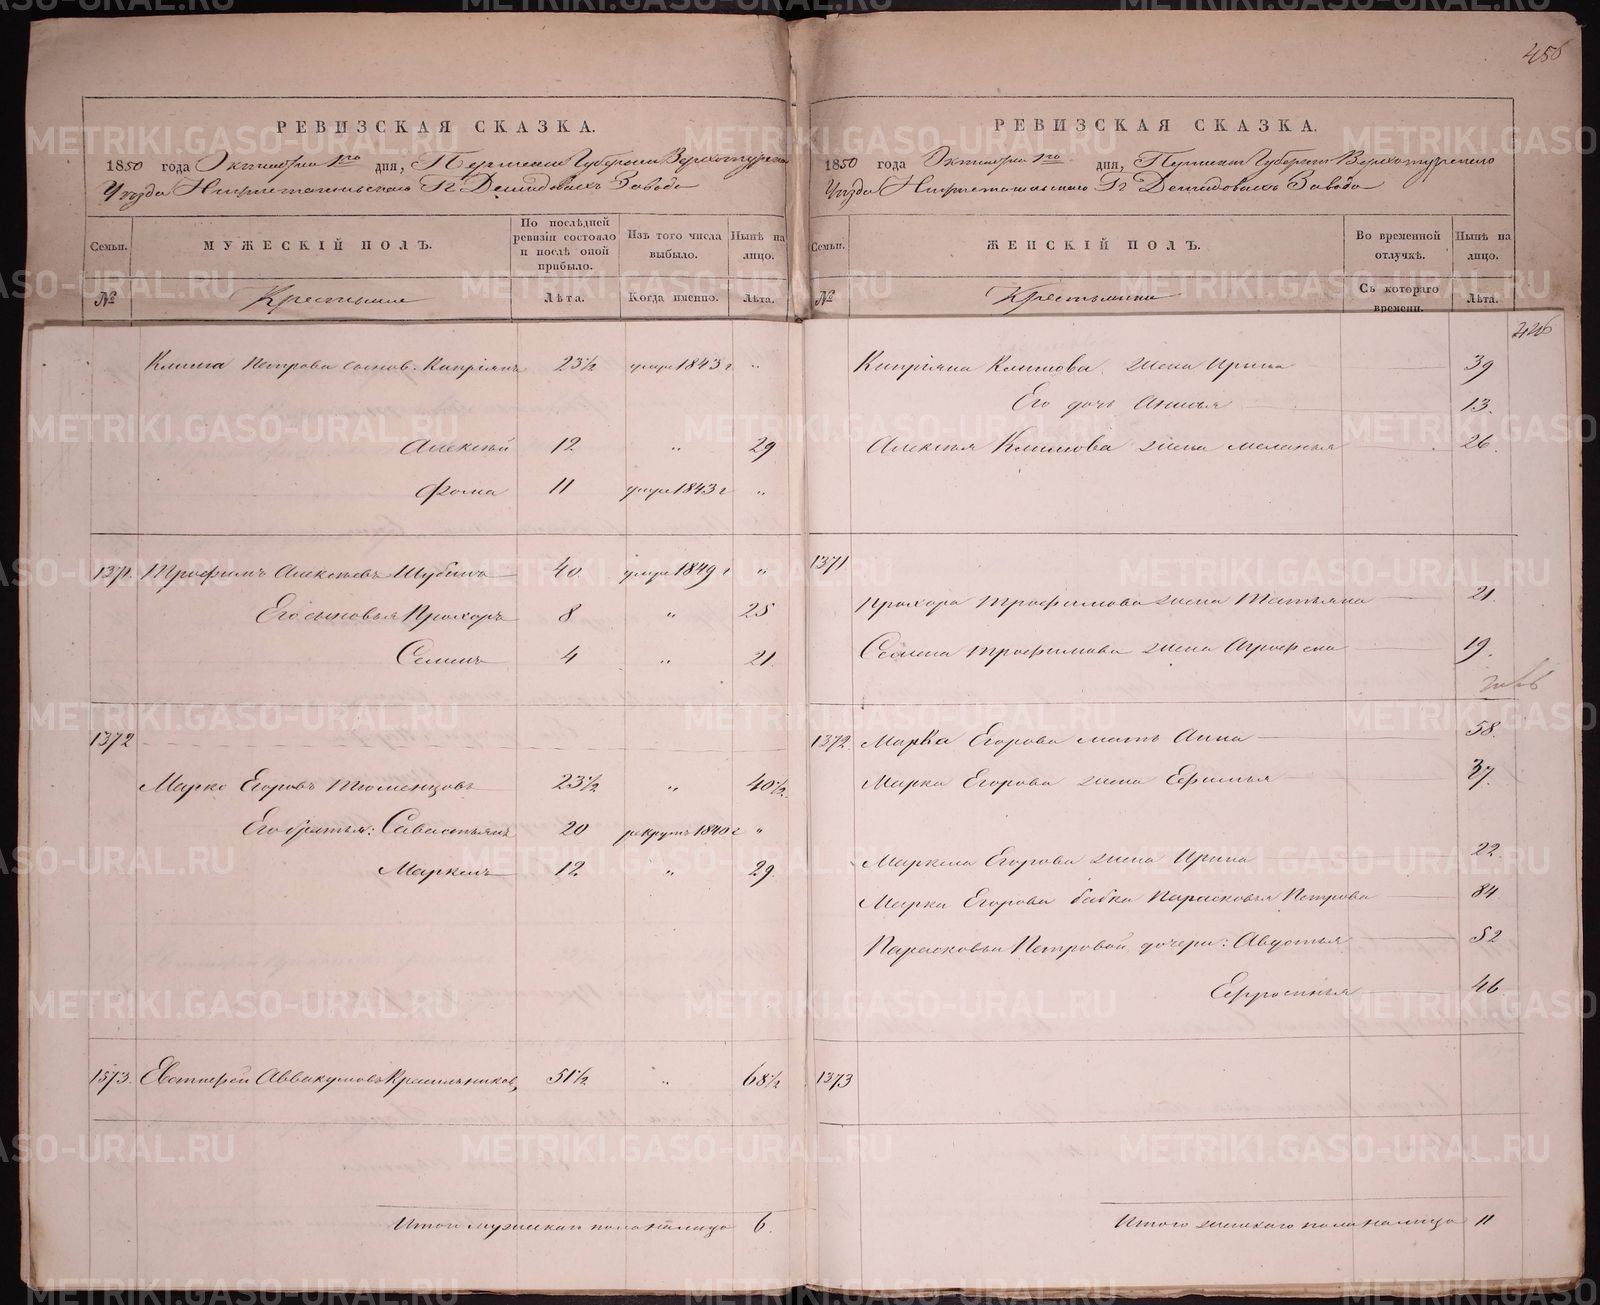 450
РЕВИЗСКАЯ СКАЗКА.
1850 года Октября 1го дня, Пермской Губернии Верхотурскаго
Уезда Нижнетагильскаго Гг Демидовыхъ Завода
Семьи. МУЖЕСКІЙ ПОЛЪ. По послѣдней ревизіи состояло и послѣ оной прибыло. Изъ того числа выбыло. Нынѣ на лицо.
№ Крестьяне Лѣта. Когда именно. Лѣта.
Клима Петрова сынов. Кипріянъ 23½ умре 1843 г "
Алексѣй 12 " 29
Фома 11 умре 1843 г "
1371. Трофимъ Алексѣевъ Шубинъ 40 умре 1849 г "
Его сыновья Прохоръ 8 " 25
Семенъ 4 " 21
1372
Марко Егоровъ Тюменцовъ 23½ " 40½
Его братья: Савастьянъ 20 рекрутъ 1840 г "
Маркелъ 12 " 29
1373. Евстифей Аввакумовъ Красильников 51½ " 68½
Итого мужескаго пола налицо 6.
РЕВИЗСКАЯ СКАЗКА.
1850 года Октября 1го дня, Пермской Губерніи Верхотурскаго
Уезда Нижнетагильскаго Гг Демидовыхъ Завода
Семьи. ЖЕНСКІЙ ПОЛЪ. Во временной отлучкѣ. Нынѣ на лицо.
№ Крестьянки Съ котораго времени. Лѣта.
446
Кипріяна Климова жена Ирина 39
Его дочь Анисья 13.
Алексѣя Климова жена Меланья 26.
1371
Прохора Трофимова жена Татьяна 21.
Семена Трофимова жена Агрофена 19.
1372 Марка Егорова мать Анна 58.
Марка Егорова жена Ефимья 37.
Маркела Егорова жена Ирина 22.
Марка Егорова бабка Парасковья Петрова 84
Парасковьи Петровой дочери: Авдотья 52
Ефросинья 46
1373
Итого женскаго пола налицо 11
METRIKI.GASO-URAL.RU